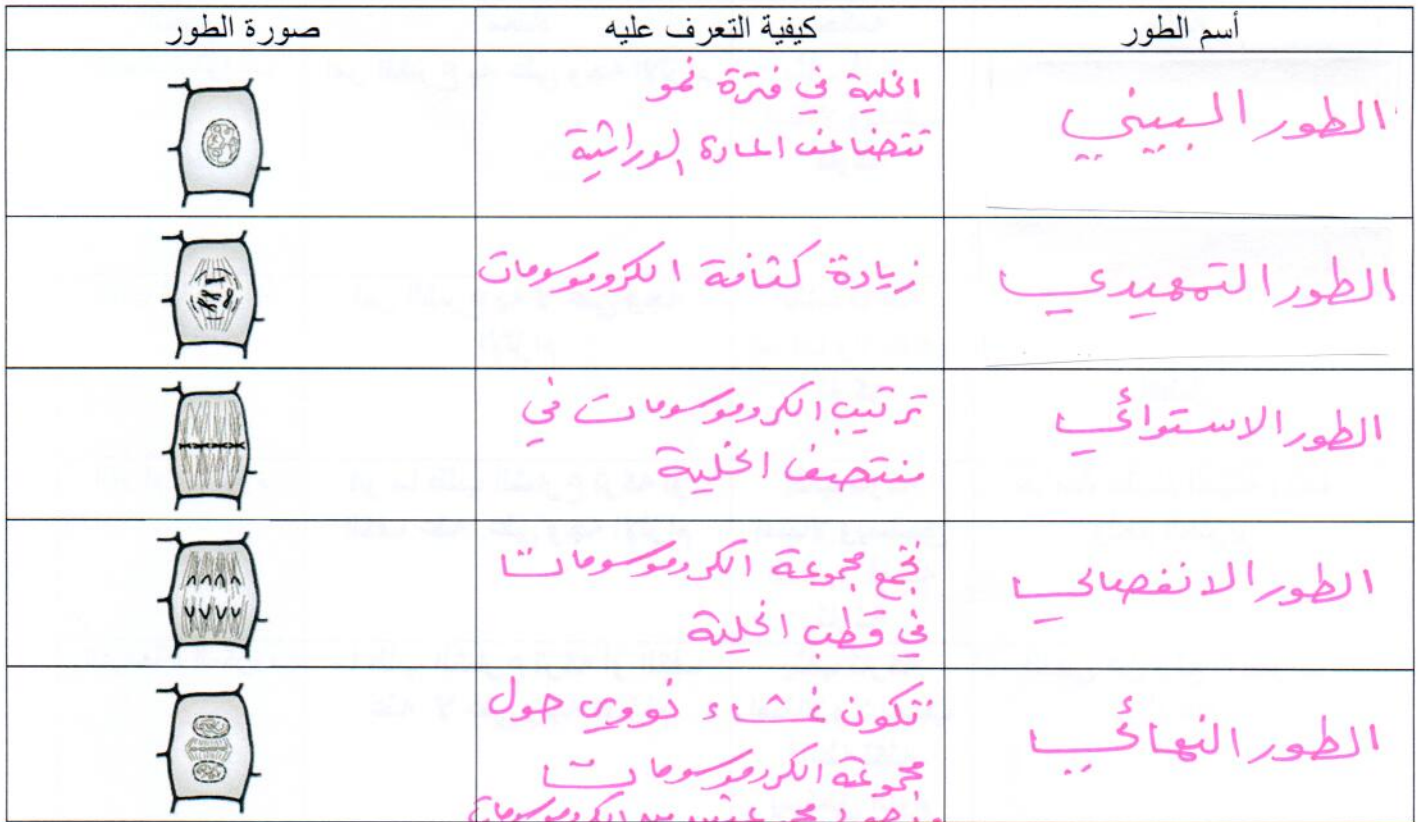 أسم الطور
كيفية التعرف عليه
صورة الطور
الطور البيني
الخلية في فترة نمو
تتضاعف المادة الوراثية
الطور التمهيدي
زيادة كثافة الكروموسومات
الطور الاستوائي
ترتيب الكروموسومات في
منتصف الخلية
الطور الانفصالي
تجمع مجموعة الكروموسومات
في قطب الخلية
الطور النهائي
تكون غشاء نووي حول
مجموعة الكروموسومات